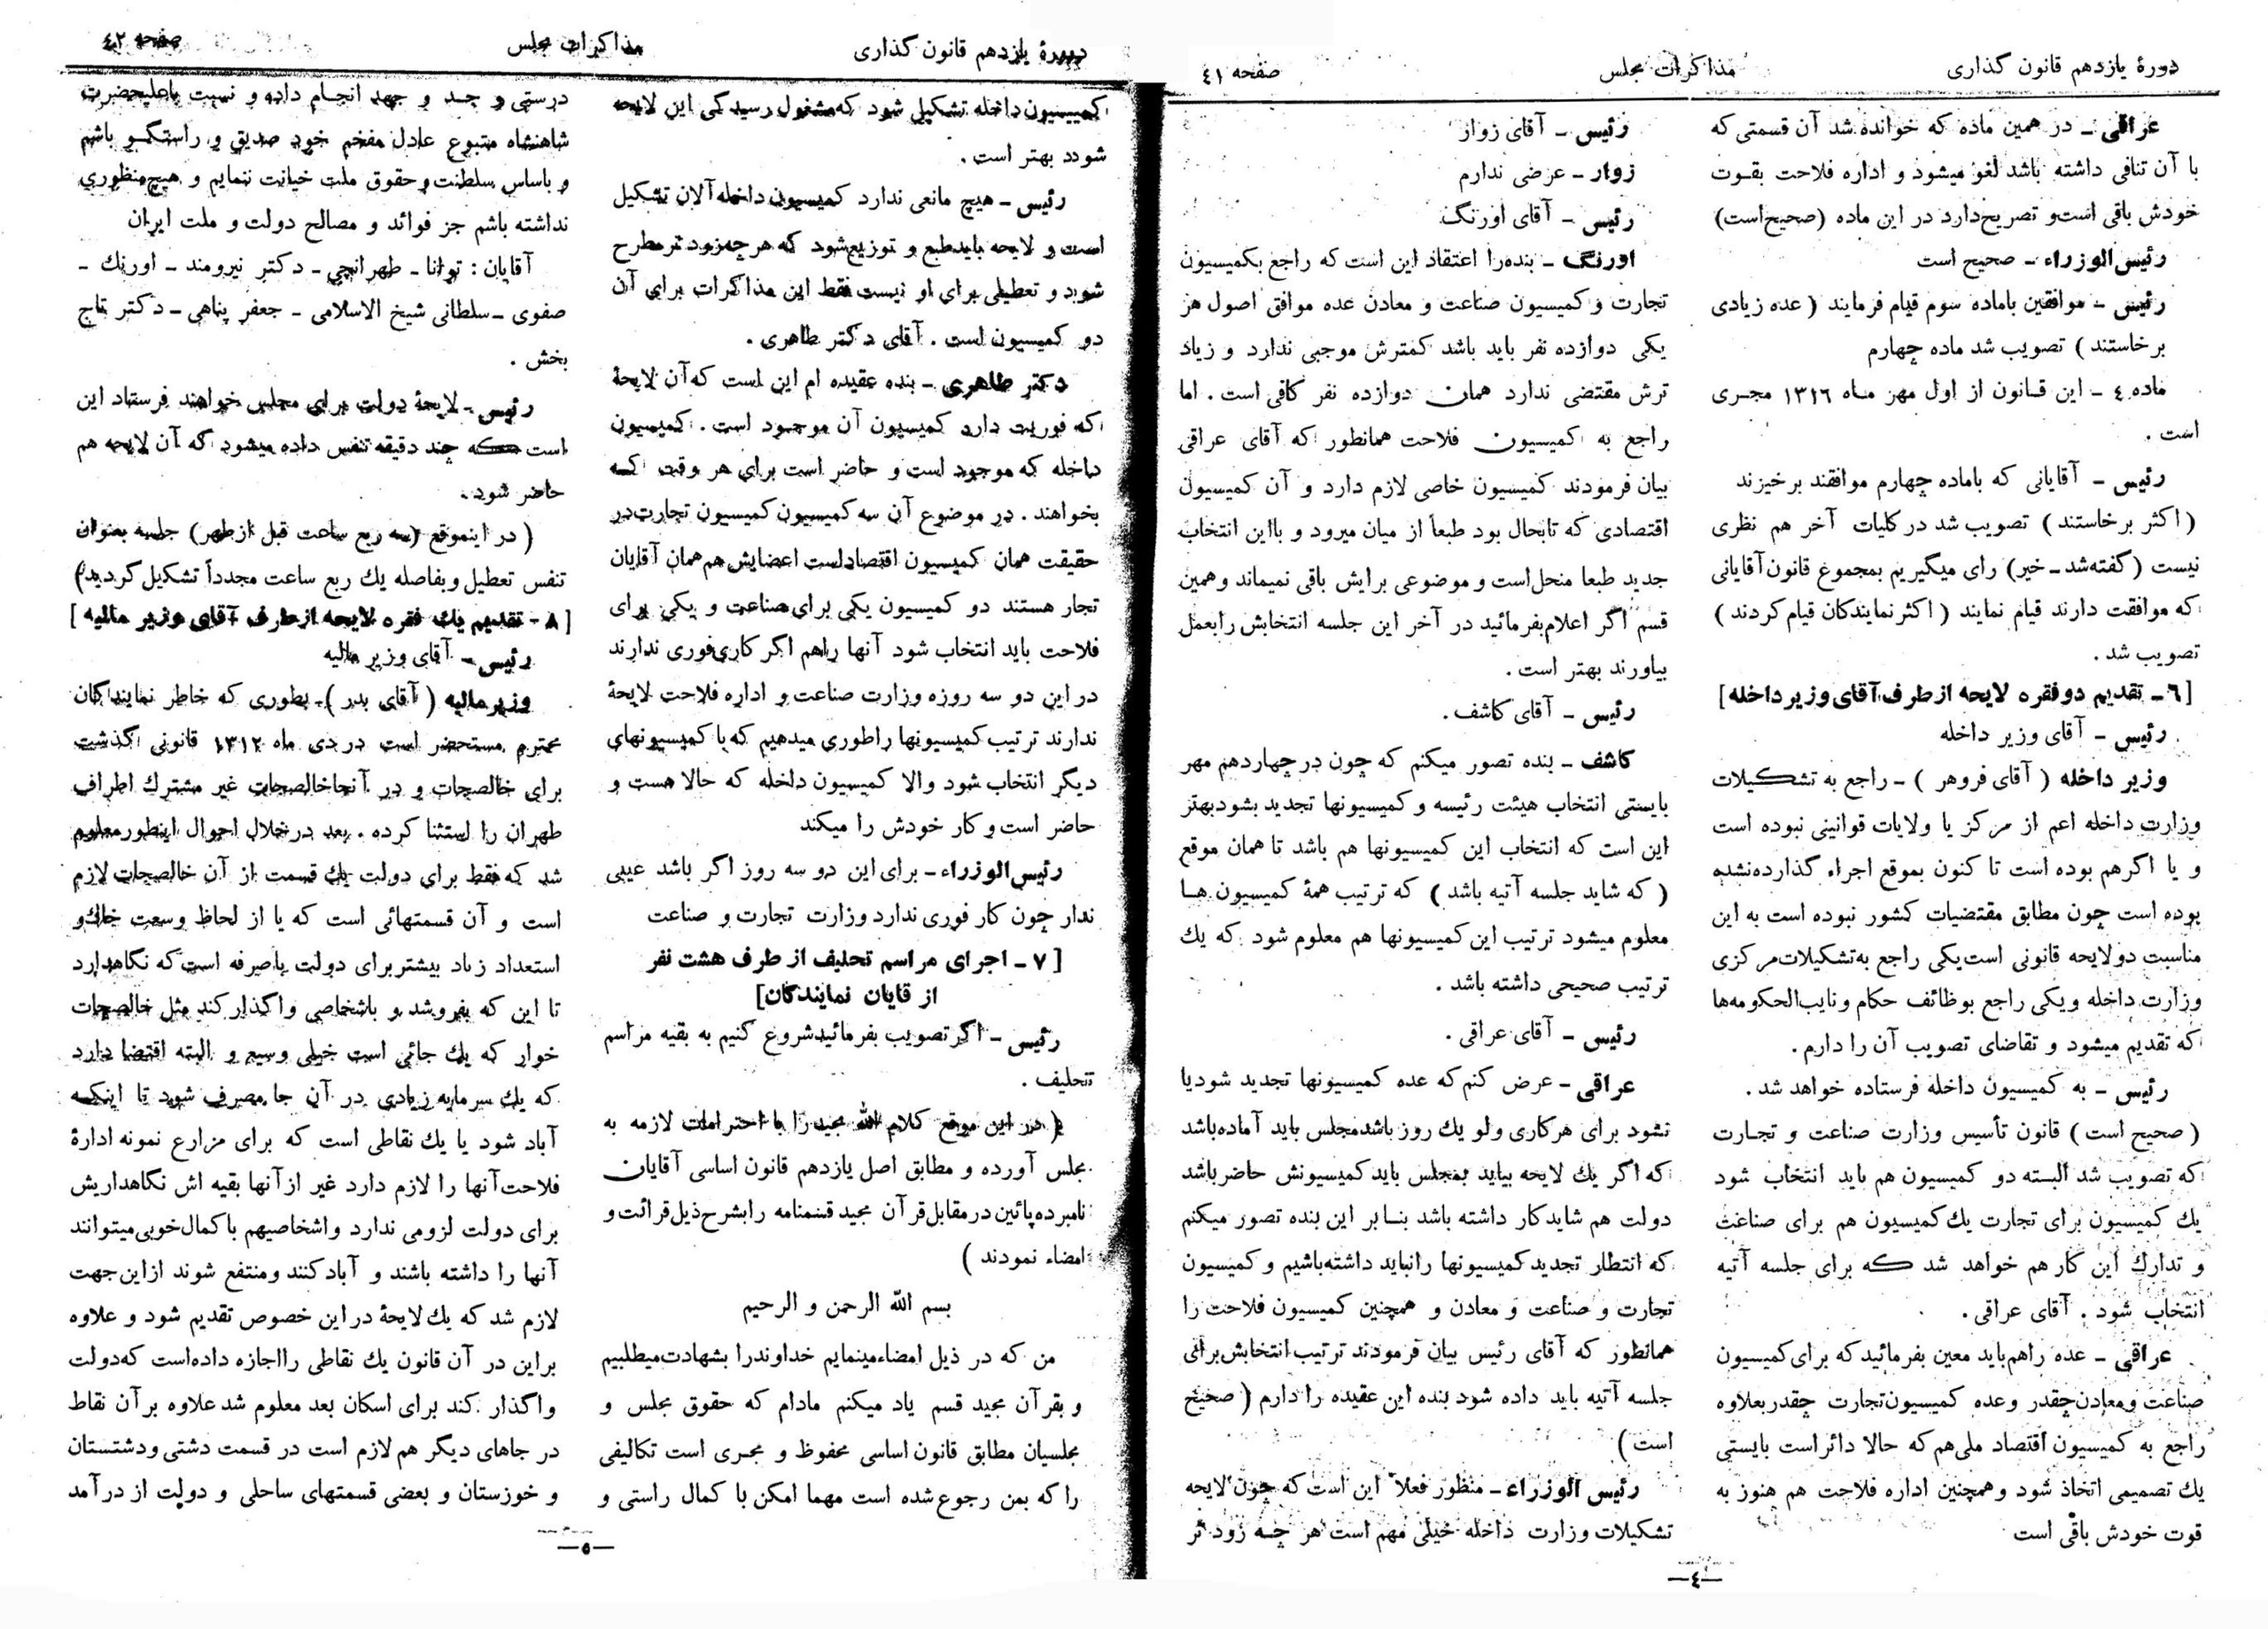 دورهٔ یازدهم قانون گذاری
مذاکرات مجلس
صفحه ٤١
عراقی ـ در همین ماده که خوانده شد آن قسمتی که
با آن تنافی داشته باشد لغو میشود و اداره فلاحت بقوت
خودش باقی است‌و تصریح‌دارد در این ماده (صحیح‌است)
رئیس‌الوزراء ـ صحیح است
رئیس ـ موافقین باماده سوم قیام فرمایند ( عده زیادی
برخاستند ) تصویب شد ماده چهارم
ماده ٤ ـ این قـانون از اول مهر مـاه ١٣١٦ مجـری
است .
رئیس ـ آقایانی که باماده چهارم موافقند برخیزند
( اکثر برخاستند ) تصویب شد در کلیات آخر هم نظری
نیست (گفته‌شد ـ خیر) رای میگیریم بمجموع قانون‌آقایانی
که موافقت دارند قیام نمایند ( اکثر نمایندکان قیام کردند )
تصویب شد .
[٦ ـ تقدیم دوفقره لایحه ازطرف‌آقای‌وزیرداخله]
رئیس ـ آقای وزیر داخله
وزیر داخله ( آقای فروهر ) ـ راجع به تشکیلات
وزارت داخله اعم از مرکز یا ولایات قوانینی نبوده است
و یا اگرهم بوده است تا کنون بموقع اجراء گذارده‌نشده
بوده است چون مطابق مقتضیات کشور نبوده است به این
مناسبت دولایحه قانونی است‌یکی راجع به‌تشکیلات‌مرکزی
وزارت داخله ویکی راجع بوظائف حکام ونایب‌الحکومه‌ها
که تقدیم میشود و تقاضای تصویب آن را دارم .
رئیس ـ به کمیسیون داخله فرستاده خواهد شد .
( صحیح است ) قانون تأسیس وزارت صناعت و تجـارت
که تصویب شد البسته دو کمیسیون هم باید انتخاب شود
یك کمیسیون برای تجارت یك‌کمیسیون هم برای صناعت
و تدارك این کار هم خواهد شد که برای جلسه آتیه
انتخاب شود . آقای عراقی .
عراقی ـ عده راهم‌باید معین بفرمائیدکه برای‌کمیسیون
صناعت ومعادن‌چقدر وعده کمیسیون‌تجارت چقدربعلاوه
راجع به کمیسیون اقتصاد ملی‌هم‌که حالا دائراست بایستی
یك تصمیمی اتخاذ شود وهمچنین اداره فلاحت هم هنوز به
قوت خودش باقی است
رئیس ـ آقای زوار
زوار ـ عرضی ندارم
رئیس ـ آقای اورنگ
اورنگ ـ بنده‌را اعتقاد این است که راجع بکمیسیون
تجارت وکمیسیون صناعت و معادن عده موافق اصول هر
یکی دوازده نفر باید باشد کمترش موجبی ندارد و زیاد
ترش مقتضی ندارد همان دوازده نفر کافی است . اما
راجع به کمیسیون فلاحت همانطور که آقای عراقی
بیان فرمودند کمیسیون خاصی لازم دارد و آن کمیسیون
اقتصادی که تابحال بود طبعاً از میان میرود و بااین انتخاب
جدید طبعا منحل‌است و موضوعی برایش باقی نمیماند وهمین
قسم اگر اعلام‌بفرمائید در آخر این جلسه انتخابش رابعمل
بیاورند بهتر است .
رئیس ـ آقای کاشف .
کاشف ـ بنده تصور میکنم که چون درچهاردهم مهر
بایستی انتخاب هیئت رئیسه و کمیسیونها تجدید بشودبهتر
این است که انتخاب این کمیسیونها هم باشد تا همان موقع
( که شاید جلسه آتیه باشد ) که ترتیب همهٔ کمیسیون هـا
معلوم میشود ترتیب این‌کمیسیونها هم معلوم شود که یك
ترتیب صحیحی داشته باشد .
رئیس ـ آقای عراقی .
عراقی ـ عرض کنم‌که عده کمیسیونها تجدید شودیا
نشود برای هرکاری ولو یك روز باشدمجلس باید آماده‌باشد
که اگر یك لایحه بیاید بمجلس باید کمیسیونش حاضرباشد
دولت هم شایدکار داشته باشد بنـابر این بنده تصور میکنم
که انتطار تجدید کمیسیونها رانباید داشته‌باشیم و کمیسیون
تجارت و صناعت و معادن و همچنین کمیسیون فلاحت را
همانطور که آقای رئیس بیان فرمودند ترتیب انتخابش‌برای
جلسه آتیه باید داده شود بنده این عقیده را دارم ( صحیح
است )
رئیس الوزراء ـ منظور فعلا این است که چون لایحه
تشکیلات وزارت داخله خیلی مهم است هر چـه زود تر
ـ٤ـ
دورهٔ یازدهم قانون گذاری
مذاکرات مجلس
صفحه ٤٢
کمیسیون‌داخله تشکیل شود که‌مشغول رسیدگی این لایحه
شودد بهتر است .
رئیس ـ هیچ مانعی ندارد کمیسیون داخله‌آلان تشکیل
است و لایحه بایدطبع و توزیع‌شود که هرچه‌زود ترمطرح
شود و تعطیلی برای او نیست فقط این مذاکرات برای آن
دو کمیسیون است . آقای دکتر طاهری .
دکتر طاهری ـ بنده عقیده ام این است که‌آن لایحهٔ
که فوریت دارد کمیسیون آن موجود است . کمیسیون
داخله که موجود است و حاضر است برای هر وقت که
بخواهند . در موضوع آن سه کمیسیون کمیسیون تجارت‌در
حقیقت همان کمیسیون اقتصاداست اعضایش هم‌همان آقایان
تجار هستند دو کمیسیون یکی برای‌صناعت و یکی برای
فلاحت باید انتخاب شود آنها راهم اگر کاری‌فوری ندارند
در این دو سه روزه وزارت صناعت و اداره فلاحت لایحهٔ
ندارند ترتیب کمیسیونها راطوری میدهیم که با کمیسیونهای
دیگر انتخاب شود والا کمیسیون داخله که حالا هست و
حاضر است وکار خودش را میکند
رئیس‌الوزراء ـ برای این دو سه روز اگر باشد عیبی
ندار چون کار فوری ندارد وزارت تجارت و صناعت
[ ٧ ـ اجرای مراسم تحلیف از طرف هشت نفر
از قایان نمایندکان]
رئیس ـ اگر تصویب بفرمائیدشروع کنیم به بقیه مراسم
تتحلیف .
( در این موقع کلام الله مجید را با احترامات لازمه به
مجلس آورده و مطابق اصل یازدهم قانون اساسی آقایان
نامبرده‌پائین درمقابل‌قرآن مجید قسمنامه رابشرح‌ذیل‌قرائت و
امضاء نمودند )
بسم الله الرحمن و الرحیم
من که در ذیل امضاءمینمایم خداوندرا بشهادت‌میطلبیم
و بقرآن مجید قسم یاد میکنم مادام که حقوق مجلس و
مجلسیان مطابق قانون اساسی محفوظ و مجـری است تکالیفی
را که بمن رجوع شده است مهما امکن با کمال راستی و
درستی و جـد و جهد انجـام داده و نسبت باعلیحضرت
شاهنشاه متبوع عادل مفخم خود صدیق و راستگـو باشم
و باساس سلطنت وحقوق ملت خیانت ننمایم و هیچ‌منظوری
نداشته باشم جز فوائد و مصالح دولت و ملت ایران
آقایان : توانا ـ طهرانچی ـ دکتر نیرومند ـ اورنك ـ
صفوی ـ سلطانی شیخ الاسلامی ـ جعفر پناهی ـ دکتر تاج
بخش .
رئیس ـ لایحهٔ دولت برای مجلس خواهند فرستاد این
است که چند دقیقه تنفس داده میشود که آن لایحه هم
حاضر شود .
( در اینموقع (سه ربع ساعت قبل ازظهر) جلسه بعنوان
تنفس تعطیل وبفاصله یك ربع ساعت مجدداً تشکیل گردید)
[ ٨ ـ تقدیم یك فقره لایحه ازطرف آقای وزیر مالیه ]
رئیس ـ آقای وزیر مالیه
وزیرمالیه ( آقای بدر ) ـ بطوری که خاطر نمایندکان
محترم مستحضر است در دی ماه ١٣١٢ قانونی گذشت
برای خالصجات و در آنجاخالصجات غیر مشترك اطراف
طهران را استثنا کرده . بعد درخلال احوال اینطورمعلوم
شد که فقط برای دولت یك قسمت از آن خالصجات لازم
است و آن قسمتهائی است که یا از لحاظ وسعت خاك و
استعداد زیاد بیشتربرای دولت باصرفه است‌که نگاهدارد
تا این که بفروشد و باشخاصی واگذارکند مثل خالصجات
خوار که یك جائی است خیلی وسیع و البته اقتضا دارد
که یك سرمایه زیادی در آن جا مصرف شود تا اینکه
آباد شود یا یك نقاطی است که برای مزارع نمونه ادارهٔ
فلاحت‌آنها را لازم دارد غیر از آنها بقیه اش نگاهداریش
برای دولت لزومی ندارد واشخاصیهم باکمال‌خوبی‌میتوانند
آنها را داشته باشند و آبادکنند ومنتفع شوند ازاین‌جهت
لازم شد که یك لایحهٔ در این خصوص تقدیم شود و علاوه
براین در آن قانون یك نقاطی رااجازه داده‌است که‌دولت
واگذار کند برای اسکان بعد معلوم شد علاوه بر آن نقاط
در جاهای دیگر هم لازم است در قسمت دشتی ودشتستان
و خوزستان و بعضی قسمتهای ساحلی و دولت از درآمد
ـ٥ـ